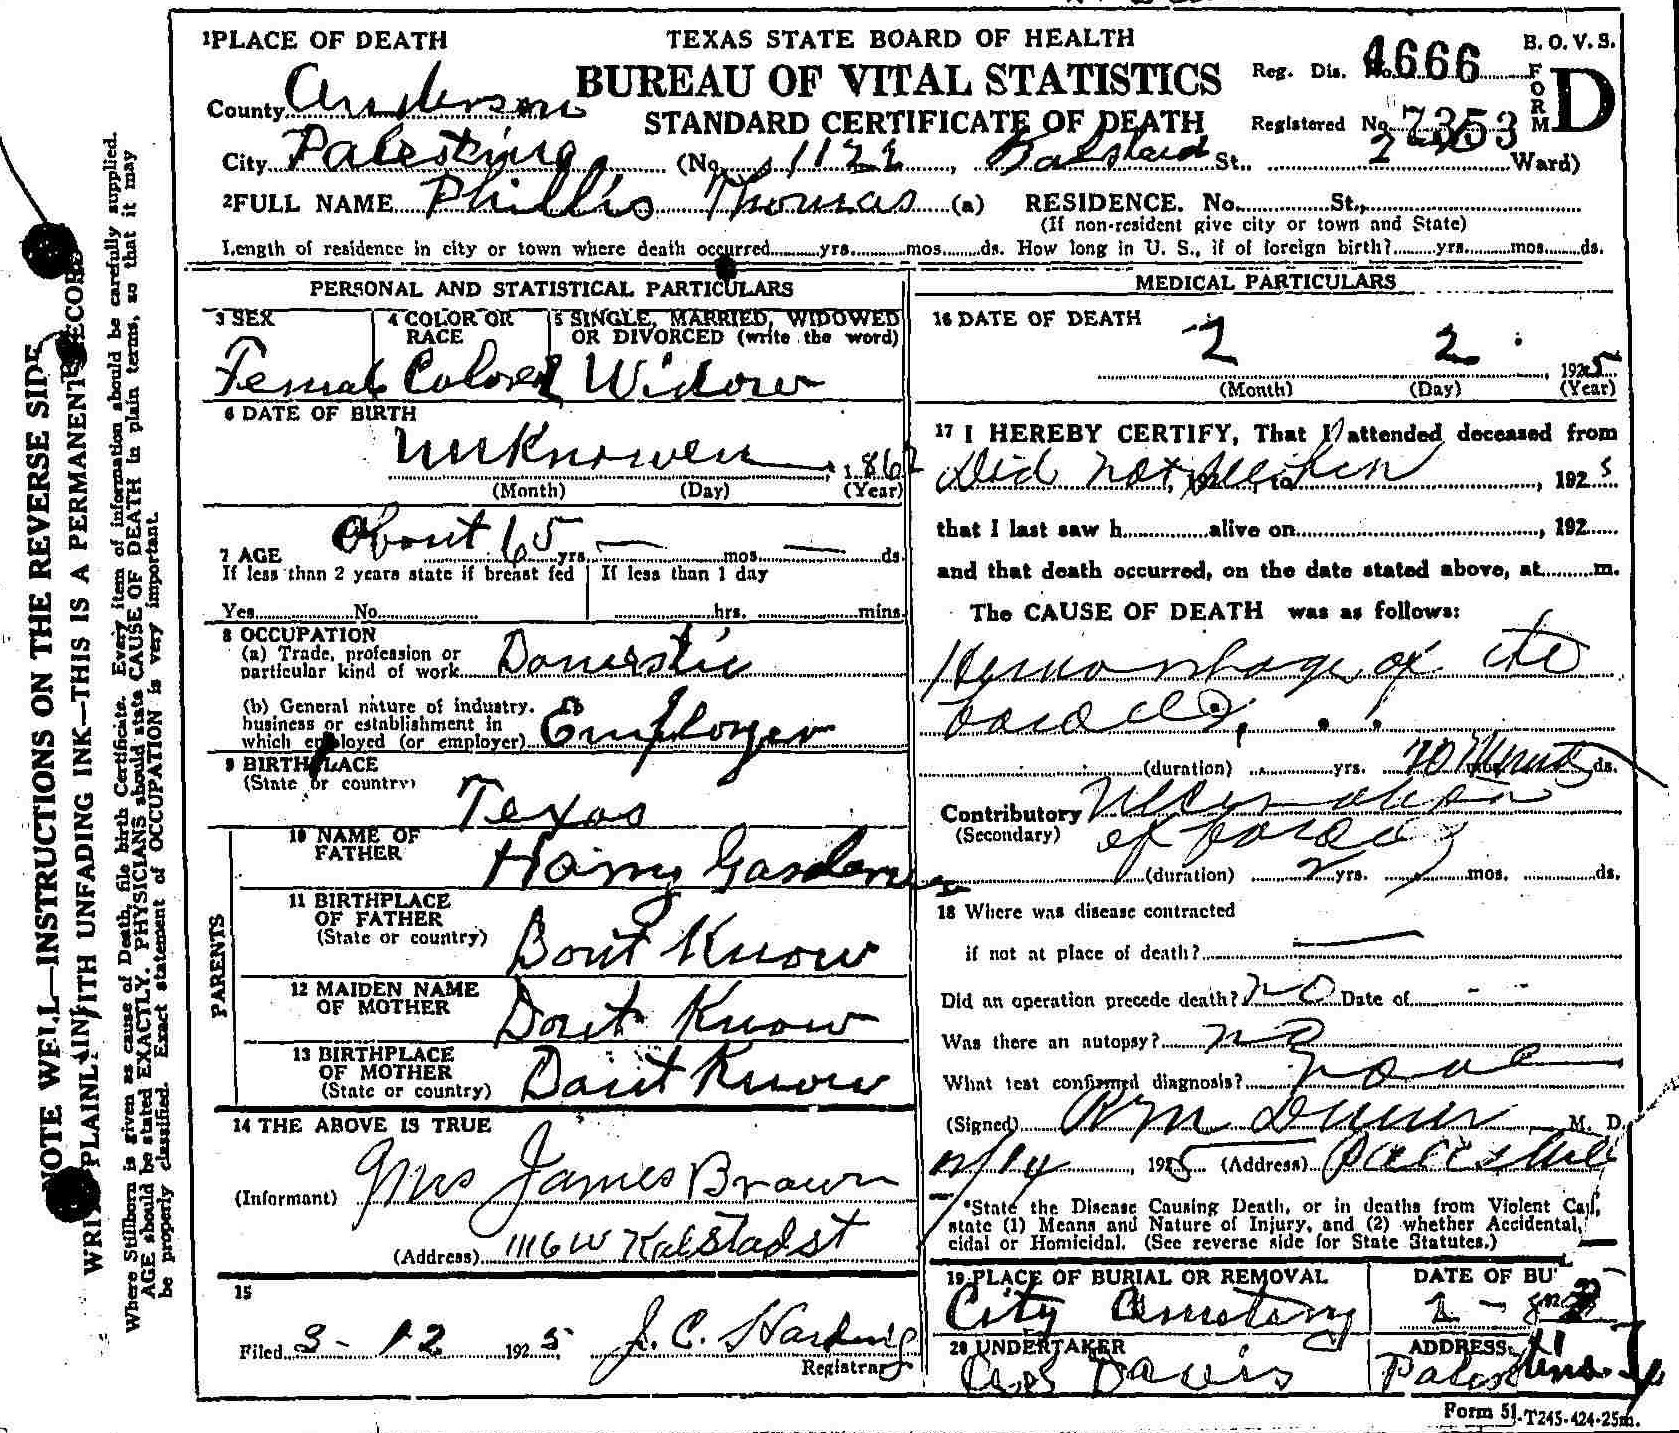 1 PLACE OF DEATH
TEXAS STATE BOARD OF HEALTH
B. O. V. S.
BUREAU OF VITAL STATISTICS
Reg. Dis. No. 4666
FORM D
County Anderson
STANDARD CERTIFICATE OF DEATH
Registered No. 7353
City Palestine (No. 1122, St. 2 Ward)
2 FULL NAME Phillis Thomas (a) RESIDENCE. No. St.,
(If non-resident give city or town and State)
Length of residence in city or town where death occurred yrs. mos. ds. How long in U. S., if of foreign birth? yrs. mos. ds.
PERSONAL AND STATISTICAL PARTICULARS
3 SEX
Female
4 COLOR OR RACE
Colored
5 SINGLE, MARRIED, WIDOWED
OR DIVORCED (write the word)
Widow
6 DATE OF BIRTH
Unknowen, 186
(Month) (Day) (Year)
7 AGE About 65 yrs. — mos. — ds.
If less than 2 years state if breast fed
Yes No
If less than 1 day
hrs. mins.
8 OCCUPATION
(a) Trade, profession or
particular kind of work Domestic
(b) General nature of industry.
business or establishment in
which employed (or employer) Employer
9 BIRTHPLACE
(State or country)
Texas
PARENTS
10 NAME OF
FATHER
Harry
11 BIRTHPLACE
OF FATHER
(State or country)
Dont Know
12 MAIDEN NAME
OF MOTHER
Dont Know
13 BIRTHPLACE
OF MOTHER
(State or country)
Dont Know
14 THE ABOVE IS TRUE
(Informant) Mrs James Brown
(Address) 1116 W Kolstad st
15
Filed 3-12 1925 J. C. Harding
Registrar
MEDICAL PARTICULARS
16 DATE OF DEATH
2 2, 1925
(Month) (Day) (Year)
17 I HEREBY CERTIFY, That I attended deceased from
Did not, 1925
that I last saw h alive on, 192
and that death occurred, on the date stated above, at m.
The CAUSE OF DEATH was as follows:
Hemorrhage of the
(duration) yrs. 20 Minutes ds.
Contributory
(Secondary) of
(duration) 2 yrs. mos. ds.
18 Where was disease contracted
if not at place of death? —
Did an operation precede death? no Date of - -
Was there an autopsy? no
What test confirmed diagnosis? none
(Signed) M. D.
1925 (Address) Palestine
*State the Disease Causing Death, or in deaths from Violent
state (1) Means and Nature of Injury, and (2) whether Accidental,
cidal or Homicidal. (See reverse side for State Statutes.)
19 PLACE OF BURIAL OR REMOVAL
City Cemetery
DATE OF BU
20 UNDERTAKER
Davis
ADDRESS
Palestine
Form 51-T245-424-25m.
NOTE WELL—INSTRUCTIONS ON THE REVERSE SIDE
WRITE PLAINLY WITH UNFADING INK—THIS IS A PERMANENT RECORD
Where Stillborn is given as cause of Death, file birth Certificate. Every item of information should be carefully supplied.
AGE should be stated EXACTLY. PHYSICIANS should state CAUSE OF DEATH in plain terms, so that it may
be properly classified. Exact statement of OCCUPATION is very important.